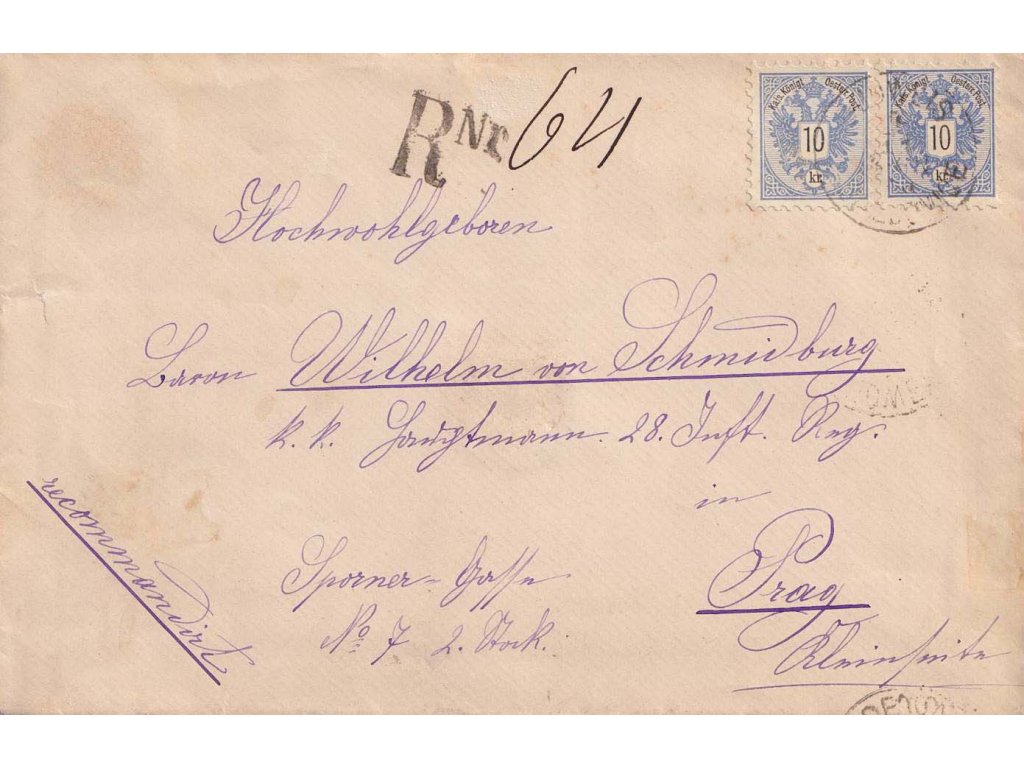 R Nr. 64
Kais. Königl. Oesterr. Post.
10
kr.
Kais. Königl. Oesterr. Post.
10
kr.
Hochwohlgeboren
Baron Wilhelm von Schmidburg
k. k. Hauptmann. 28. Inft. Reg.
in
recommandirt
Sporner-Gasse
Prag
No 7 2. Stock.
Kleinseite